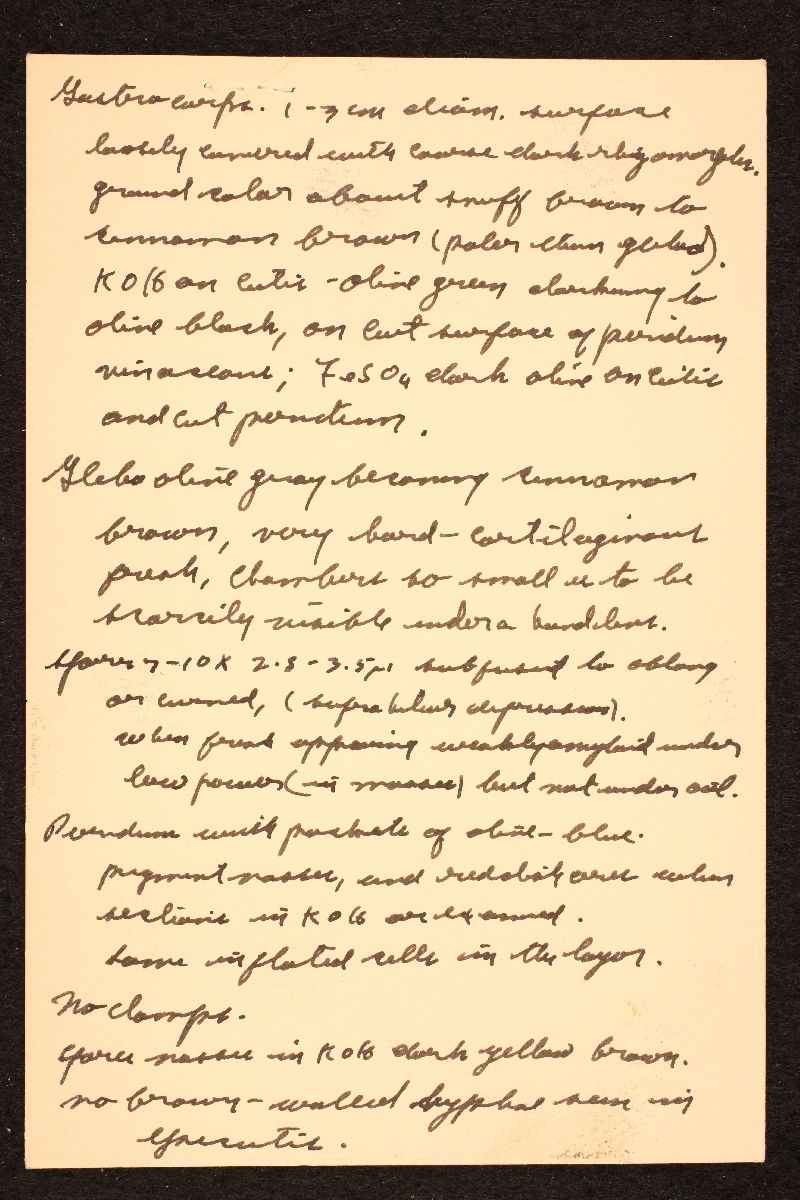 Gastrocarps. 1-3 cm diam. surface
loosely covered with coarse dark rhizomorphs.
ground color about snuff brown to
cinnamon brown (paler than gleba).
KOH on cutis - olive green darkening to
olive black, on cut surface of peridium
vinaceous; FeSO4 dark olive on cutis
and cut peridium.
Gleba olive gray becoming cinnamon
brown, very hard - cartilaginous
fresh, chambers so small as to be
scarcely visible under a hand lens.
Spores 7-10 X 2.5-3.5µ subfusoid to oblong
or curved, (suprahilar depression).
when fresh appearing weakly amyloid under
low power (in masses) but not under oil.
Peridium with pockets of olive-blue
pigment masses, and reddish ones when
sections in KOH are examined.
some inflated cells in the layer.
No clamps.
spore masses in KOH dark yellow brown.
no brown-walled hyphae seen in
epicutis.